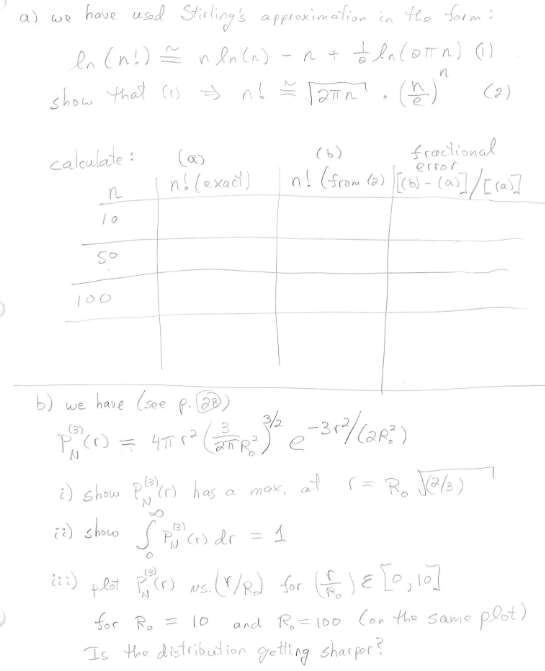 a) we have used Stirling's approximation in the form:
ln(n!) ≅ n ln(n) - n + 1/2 ln(2πn) (1)
show that (1) ⇒ n! ≅ √(2πn) · (n/e)^n (2)
calculate: (a) (b) fractional error
n n! (exact) n! (from (2)) [(b)-(a)]/[(a)]
10
50
100
b) we have (see p. (28))
P_N^(3)(r) = 4πr² (3/(2πR₀²))^(3/2) e^(-3r²/(2R₀²))
i) show P_N^(3)(r) has a max. at r = R₀ √(2/3)
ii) show ∫₀^∞ P_N^(3)(r) dr = 1
iii) plot P_N^(3)(r) vs. (r/R₀) for (r/R₀) ε [0,10]
for R₀ = 10 and R₀ = 100 (on the same plot)
Is the distribution getting sharper?